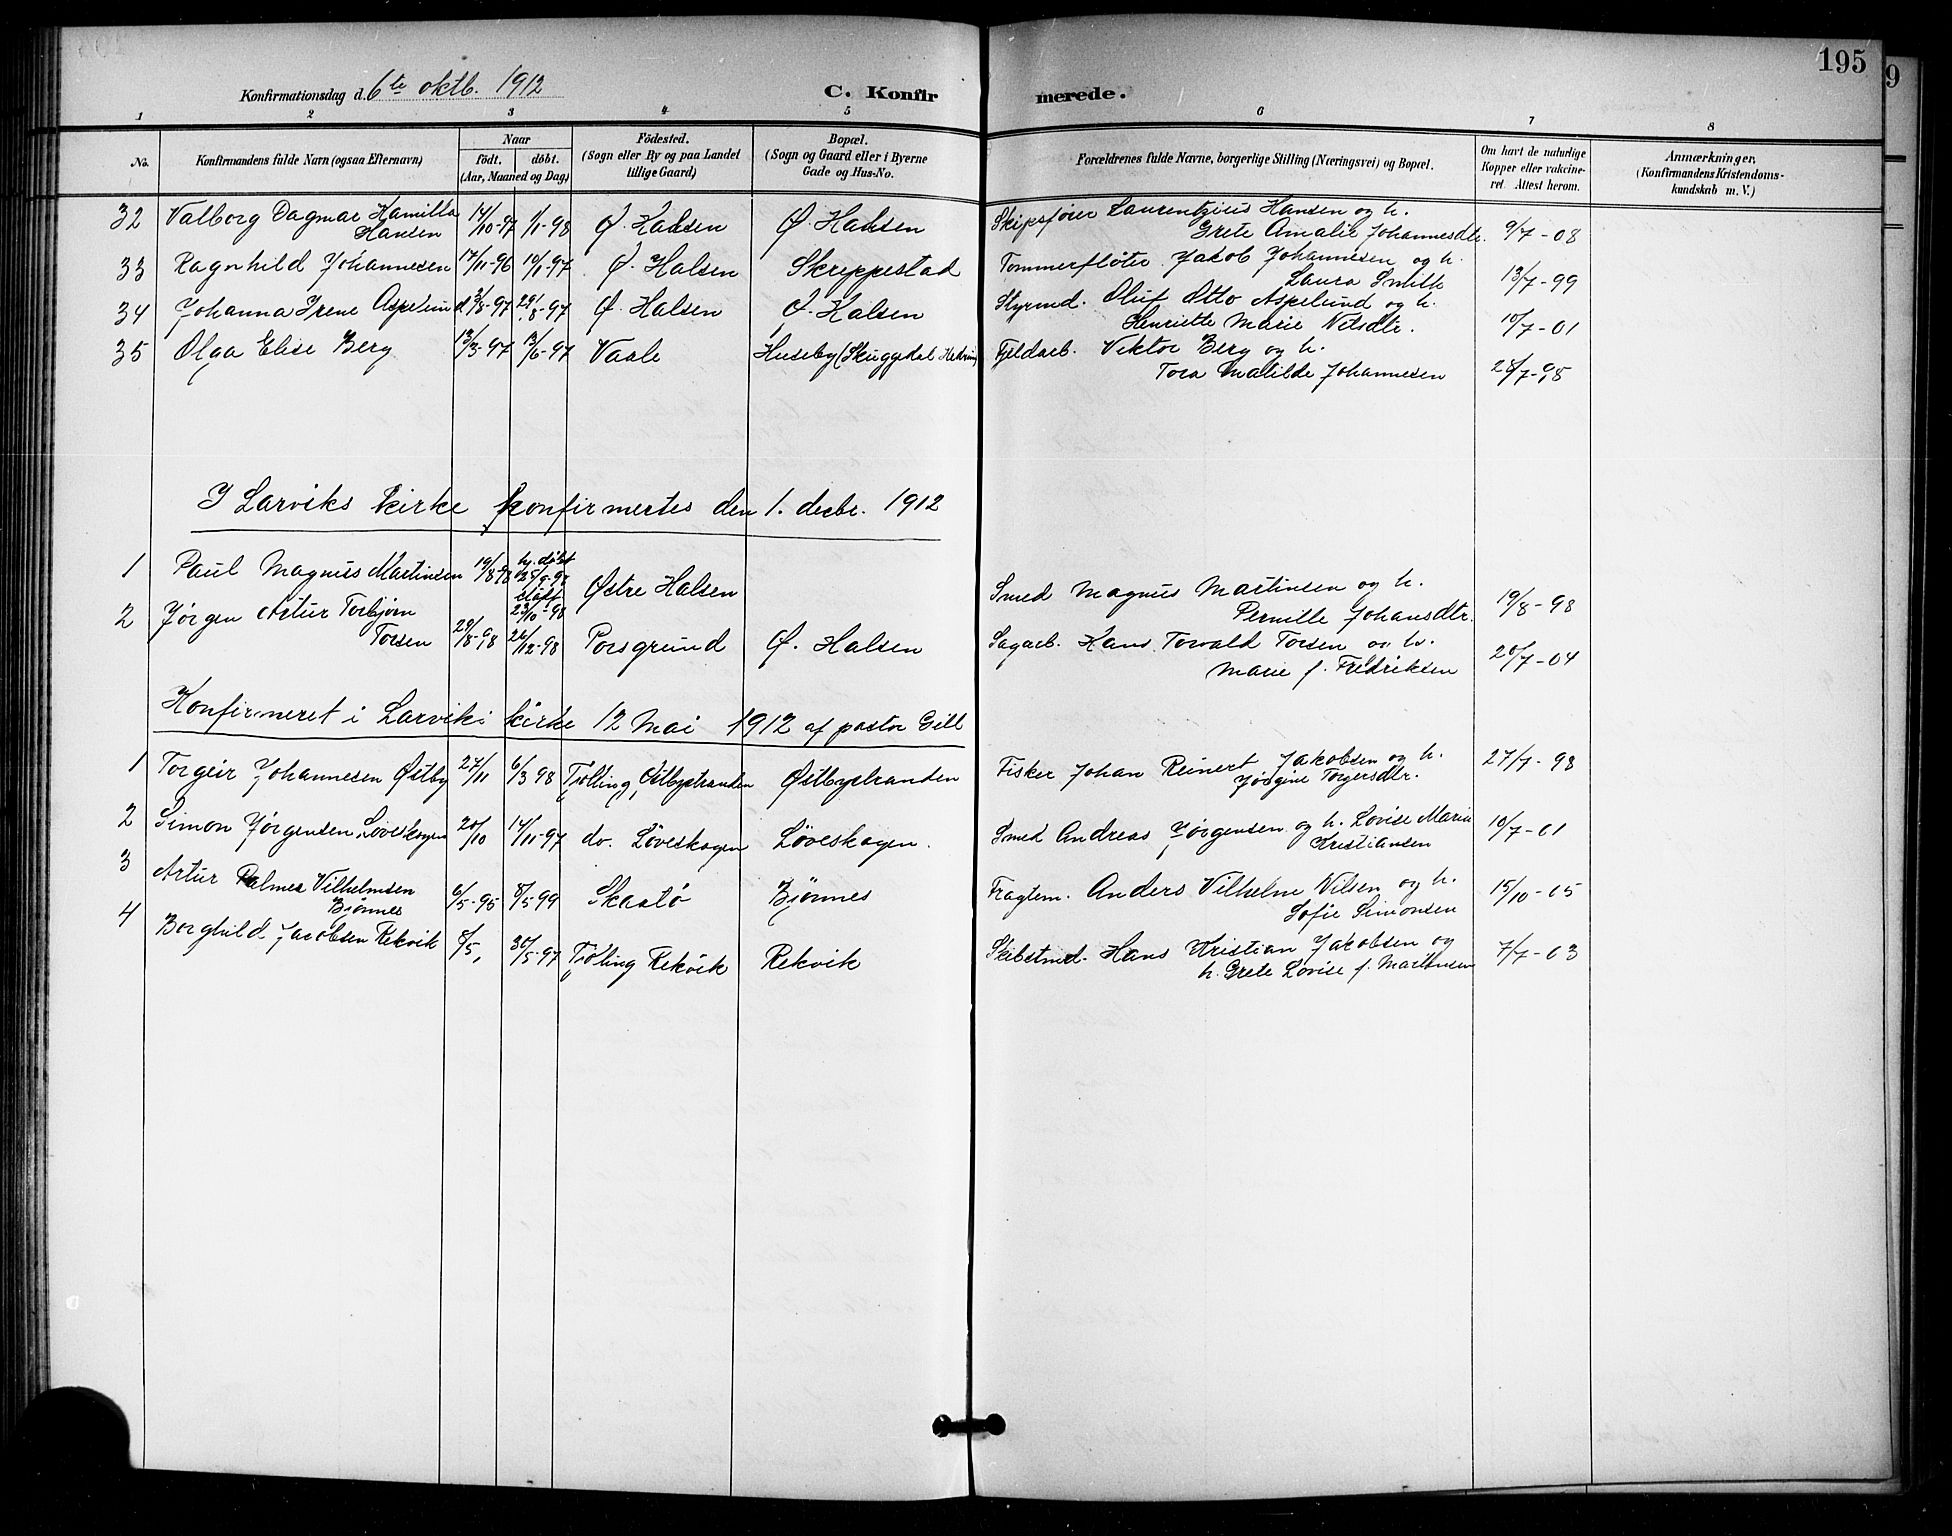 195
9
Konfirmationsdag d. 6te oktb. 1912
C. Konfirmerede.
1 2 3 4 5 6 7 8
No.
Konfirmandens fulde Navn (ogsaa Efternavn)
Naar
födt. döbt.
(Aar, Maaned og Dag)
Födested.
(Sogn eller By og paa Landet
tillige Gaard)
Bopæl.
(Sogn og Gaard eller i Byerne
Gade og Hus-No.
Forældrenes fulde Navne, borgerlige Stilling (Næringsvei) og Bopæl.
Om havt de naturlige
Kopper eller vakcine-
ret. Attest herom.
Anmærkninger,
(Konfirmandens Kristendoms-
kundskab m. V.)
32 Valborg Dagmar Hamilla 14/10-97 1/1-98 Ø. Halsen Ø. Halsen Skipsfører Laurentzius Hansen og h.
Hansen Grete Amalie Johannesdtr. 9/7-08
33 Ragnhild Johannesen 17/11-96 10/1-97 Ø. Halsen Skreppestad Tømmerfløter Jakob Johannesen og h.
Laura Smith 13/7-99
34 Johanna Irene Aspelund 3/8-97 29/8-97 Ø. Halsen Ø. Halsen Styrmd. Oluf Otto Aspelund og h.
Henriette Marie Nilsdtr. 10/7-01
35 Olga Elise Berg 13/3-97 13/6-97 Vaale Huseby (Skuggedal Hedrum) Fjeldarb. Viktor Berg og h.
Tora Matilde Johannesen 28/7-98
I Larviks kirke konfirmertes den 1. decbr. 1912
1 Paul Magnus Martinsen 19/8-98 hj. døbt
25/9-98
stadf.
23/10-98 Østre Halsen Smed Magnus Martinsen og h.
Pernille Johansdtr. 19/8-98
2 Jørgen Artur Torbjørn
Torsen 29/8-98 26/12-98 Porsgrund Ø. Halsen Sagarb. Hans Torvald Torsen og h.
Marie f. Fredriksen 20/7-04
Konfirmeret i Larviks kirke 12 Mai 1912 af pastor Gill
1 Torgeir Johannesen Østby 27/11 6/3 98 Tjølling, Østbystranden Østbystranden Fisker Johan Reinert Jakobsen og h.
Jørgine Torgersdtr. 27/7-98
2 Simon Jørgensen, Løveskogen 20/10 14/11-97 do. Løveskogen Løveskogen. Smed Andreas Jørgensen og h. Lovise Marie
Kristiansen 10/7-01
3 Artur Palmer Vilhelmsen
Bjønnes 6/5-96 8/5 99 Skaatø Bjønnes Fragtem. Anders Vilhelm Nilsen og h.
Sofie Simonsen 15/10-05
4 Borghild Jacobsen Rekvik 8/5, 30/5-97 Tjølling Rekvik Rekvik Skibstmd. Hans Kristian Jakobsen og
h. Grete Lovise f. Martinsen 7/7-03